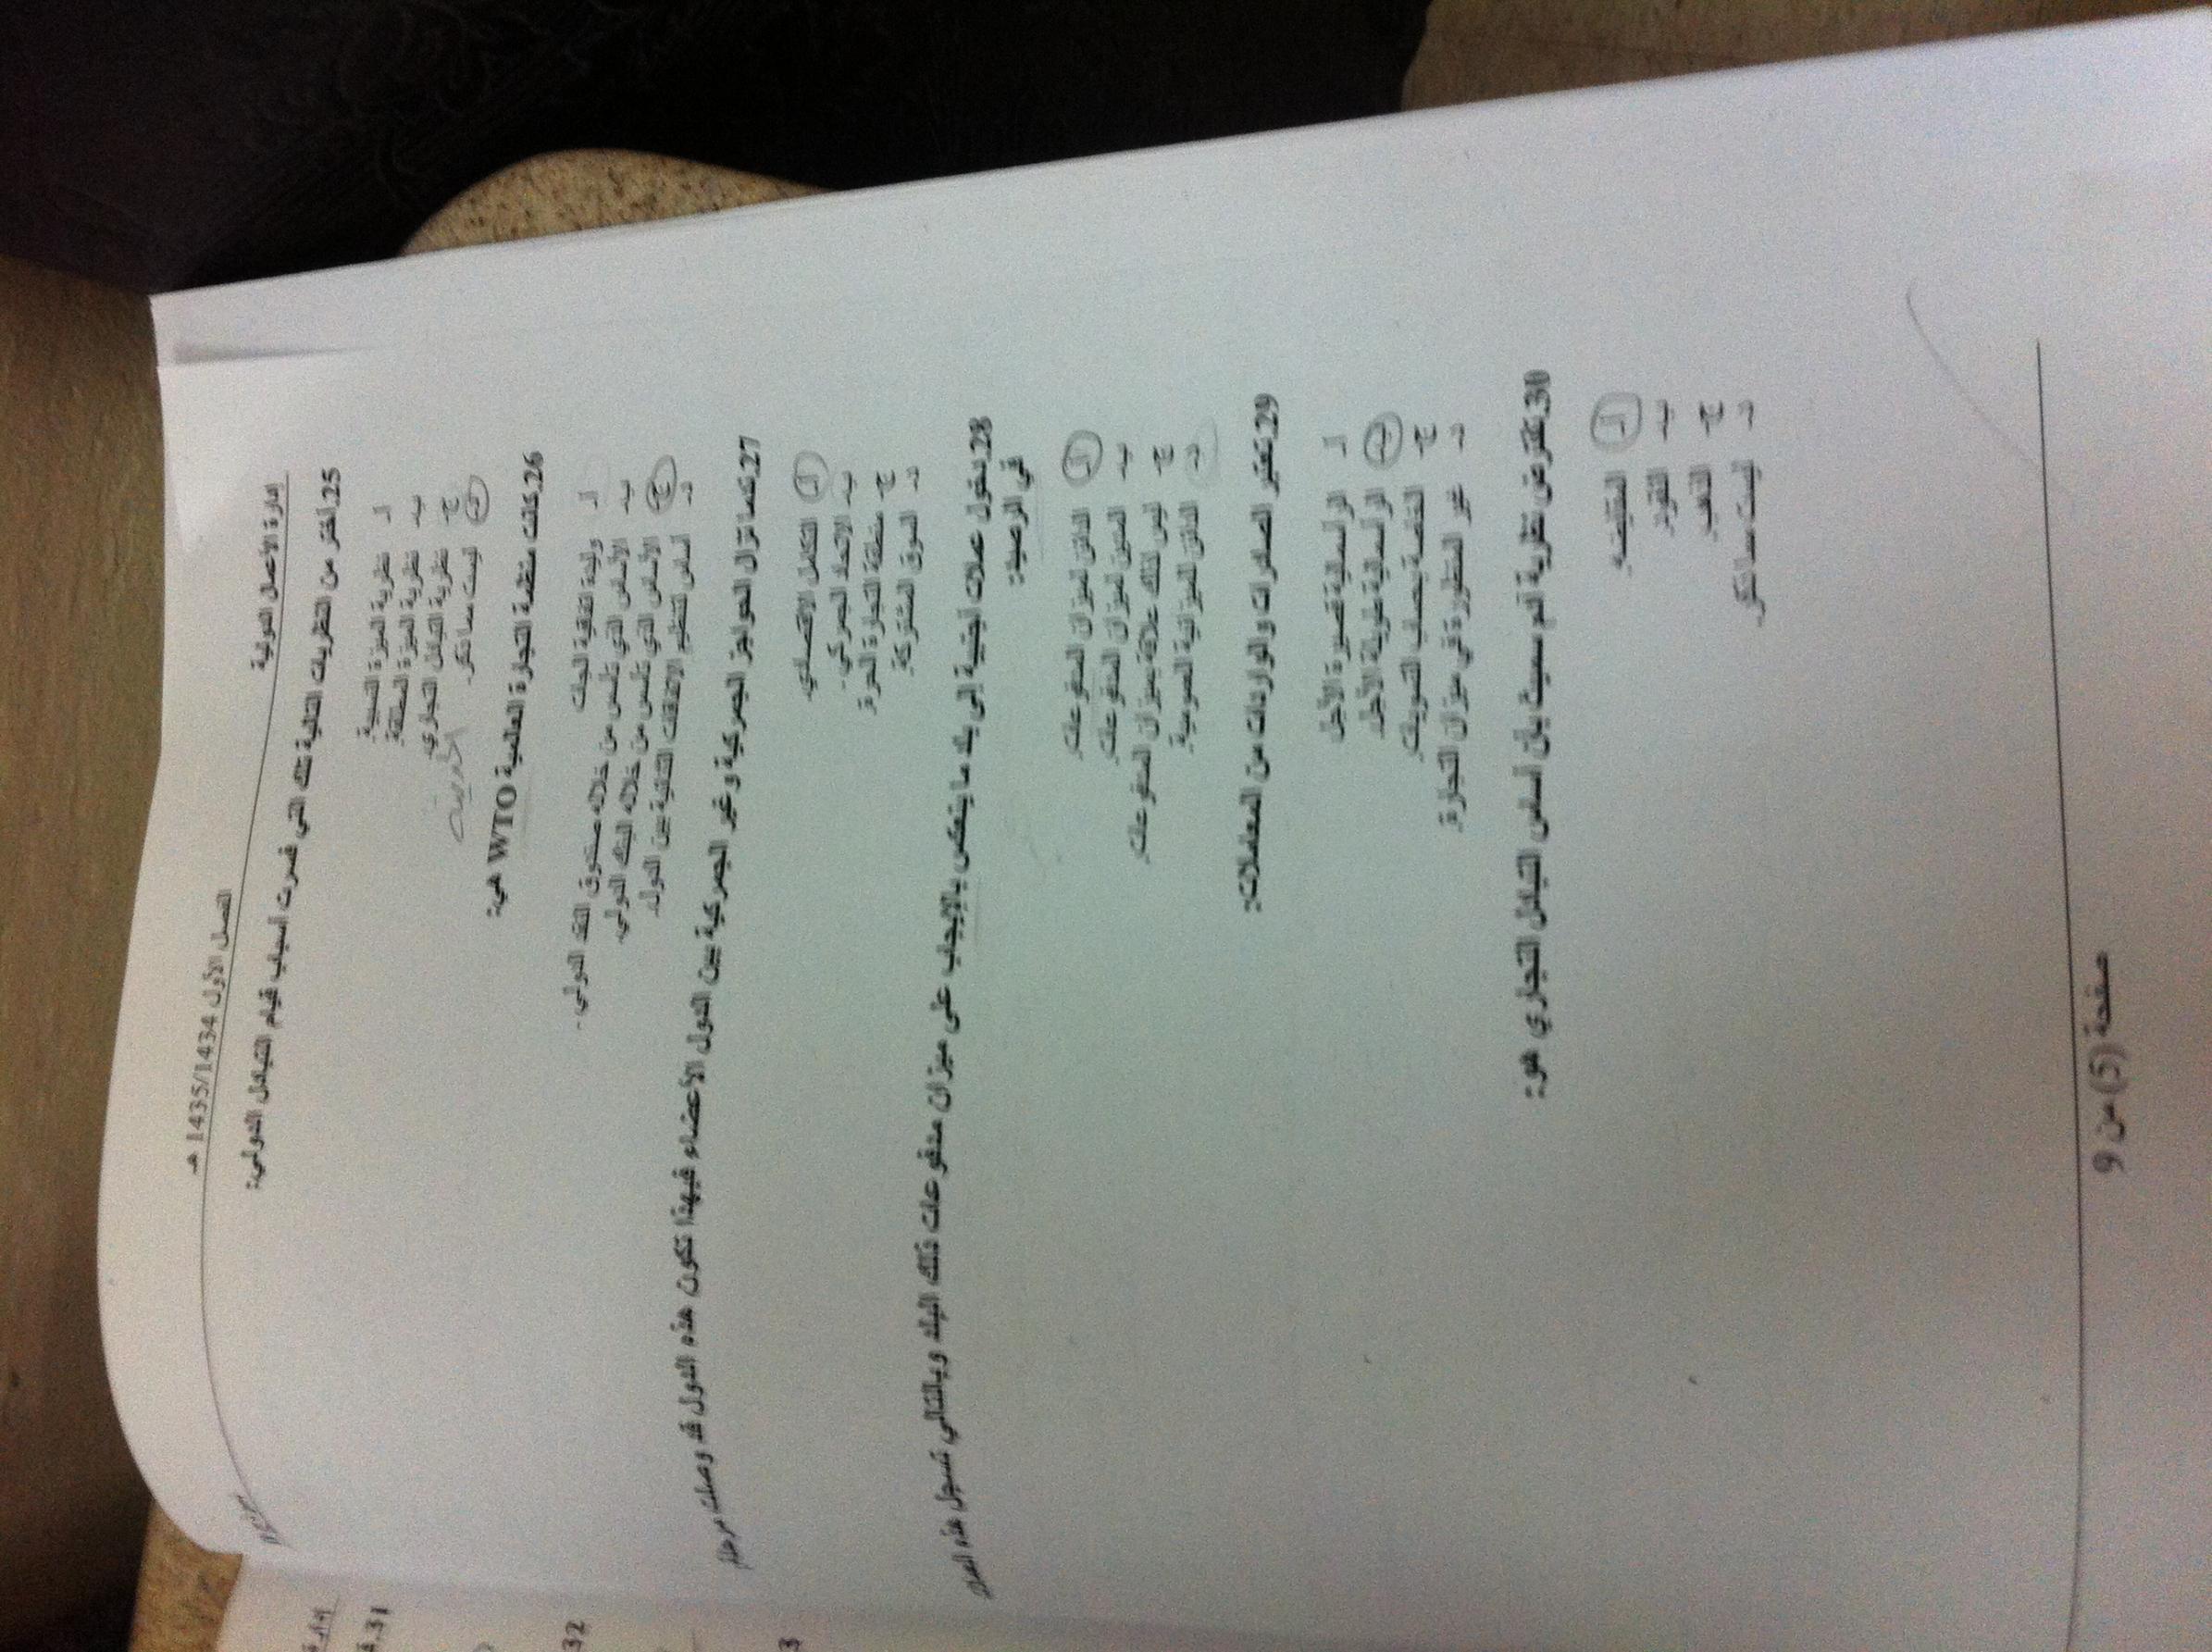 إدارة الأعمال الدولية
الفصل الأول 1435/1434 هـ
25. أختر من النظريات التالية تلك التي فسرت أسباب قيام التبادل الدولي:
أ- نظرية الميزة النسبية.
ب- نظرية الميزة المطلقة.
ج- نظرية التبادل التجاري.
د- ليست مما ذكر.
26. كانت منظمة التجارة العالمية WTO هي:
أ- وليدة اتفاقية الجات
ب- الأساس الذي تأسس من خلاله صندوق النقد الدولي.
ج- الأساس الذي تأسس من خلاله البنك الدولي.
د- أساس لتنظيم الاتفاقات الثنائية بين الدول.
27. كما تزال الحواجز الجمركية وغير الجمركية بين الدول الأعضاء فيهذا تكون هذه الدول قد وصلت مرحلة
أ- التكامل الاقتصادي.
ب- الاتحاد الجمركي.
ج- منطقة التجارة الحرة
د- السوق المشتركة.
28. دخول عملات أجنبية إلى بلد ما ينعكس بالإيجاب على ميزان مدفوعات ذلك البلد وبالتالي تسجل هذه
في الرصيد:
أ- الدائن لميزان المدفوعات.
ب- المدين لميزان المدفوعات.
ج- ليس لذلك علاقة بميزان المدفوعات.
د- الدائن للميزانية العمومية.
29. تعتبر الصادرات والواردات من المعاملات:
أ- الرأسمالية قصيرة الأجل
ب- الرأسمالية طويلة الأجل.
ج- الخاصة بحساب التسويات.
د- غير المنظورة في ميزان التجارة.
30. تفترض نظرية آدم سميث بأن أساس التبادل التجاري هو:
أ- المقايضه.
ب- النقود.
ج- الذهب.
د- ليست مما ذكر.
صفحة (5) من 9
31.
32
3